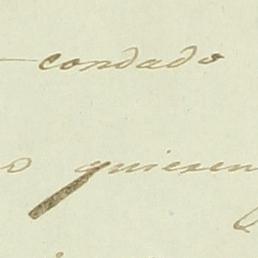 condado
o quieren